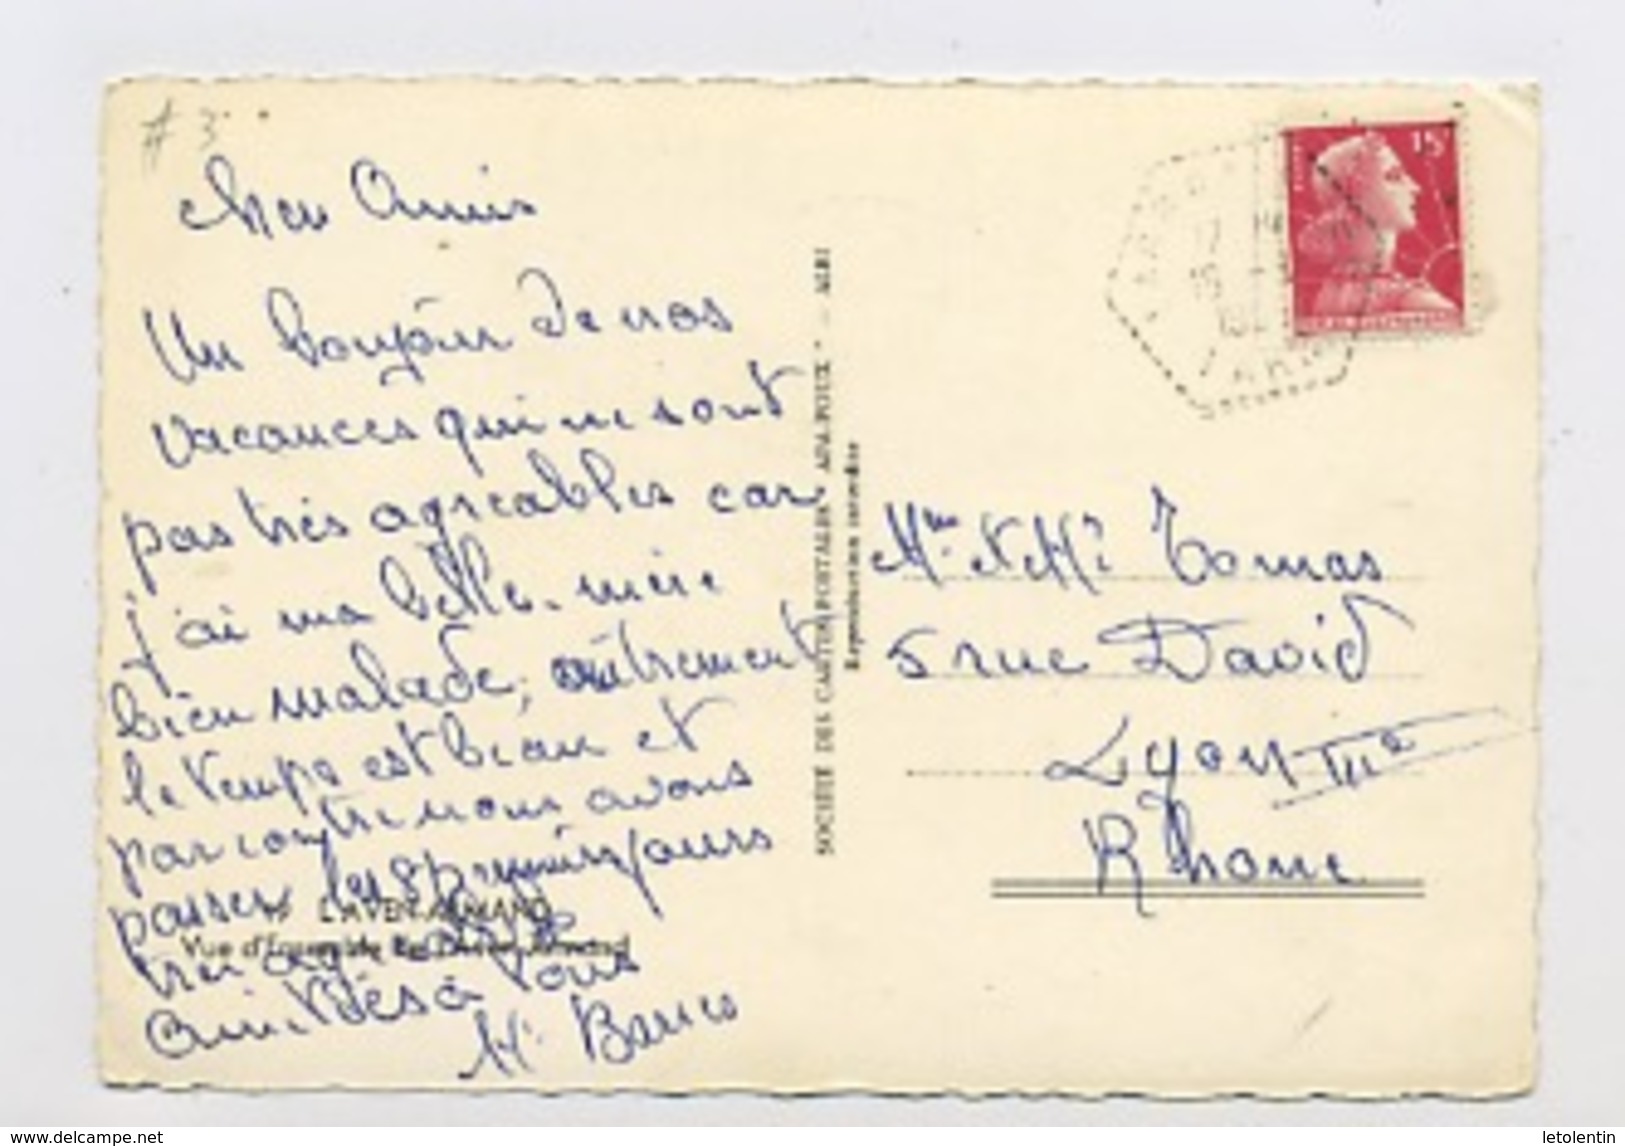 # 3
Cher Amis
Un bonjour de nos
vacances qui ne sont
pas très agreables car
j'ai ma belle-mère
bien malade, autrement
le temps est beau et
par contre nous avons
passer les 8 premiers jours
très agreable
Amitiés à tous
M. Banco
19 L'AVEN-ARMAND
Vue d'Ensemble de l'Aven Armand
SOCIETE DES CARTES POSTALES "APA-POUX" - ALBI
Reproduction interdite
15F
TARN
Mme et Mr Tomas
5 rue David
Lyon IIIe
Rhone
www.delcampe.net
letolentin